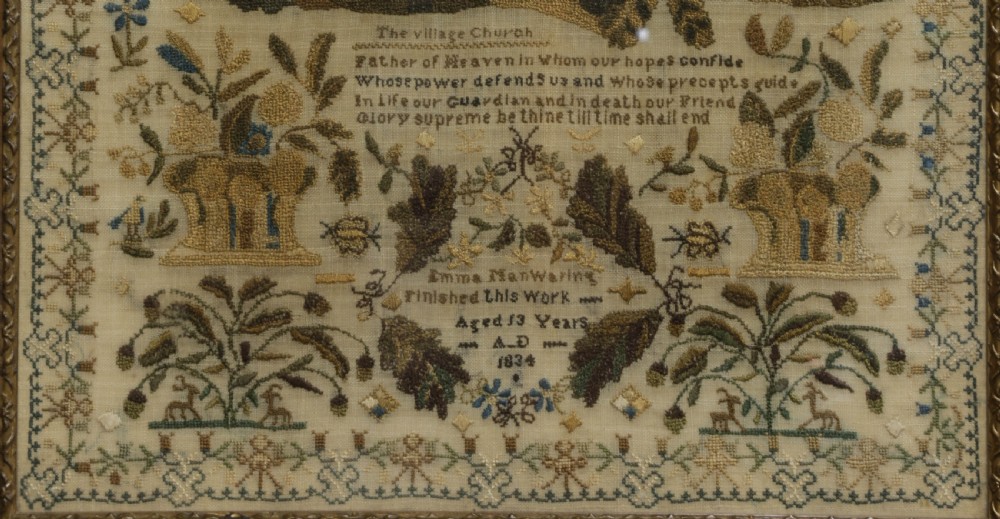 The village Church
Father of Heaven in Whom our hopes confide
Whose power defends us and Whose precepts guide
In Life our Guardian and in death our Friend
Glory supreme be thine till time shall end
Emma ManWaring
Finished this Work
Aged 13 Years
A D
1834